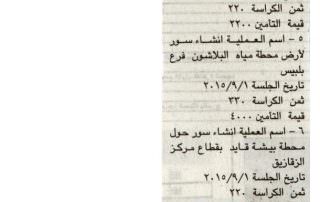 ثمن الكراسة ٢٢٠
قيمة التامين ٢٢٠٠
٥ - اسم العملية انشاء سور
لأرض محطة مياه البلاشون فرع
بلبيس
تاريخ الجلسة ٢٠١٥/٩/١
ثمن الكراسة ٣٣٠
قيمة التامين ٤٠٠٠
٦ - اسم العملية انشاء سور حول
محطة بيشة قايد بقطاع مركز
الزقازيق
تاريخ الجلسة ٢٠١٥/٩/١
ثمن الكراسة ٢٢٠